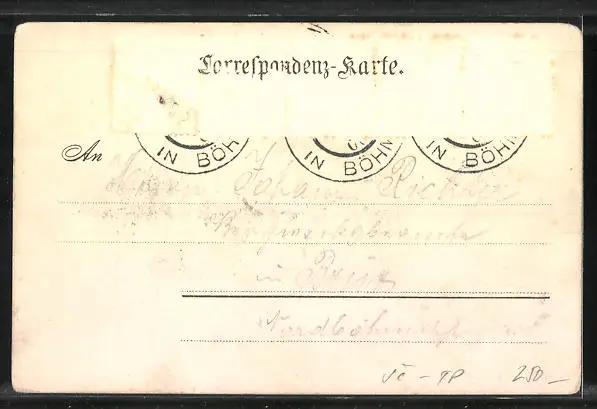 Correspondenz-Karte.
IN BÖHM
IN BÖHM
IN BÖHM
An Herrn Johann Richter
in Brüx
Nordböhmen
250-